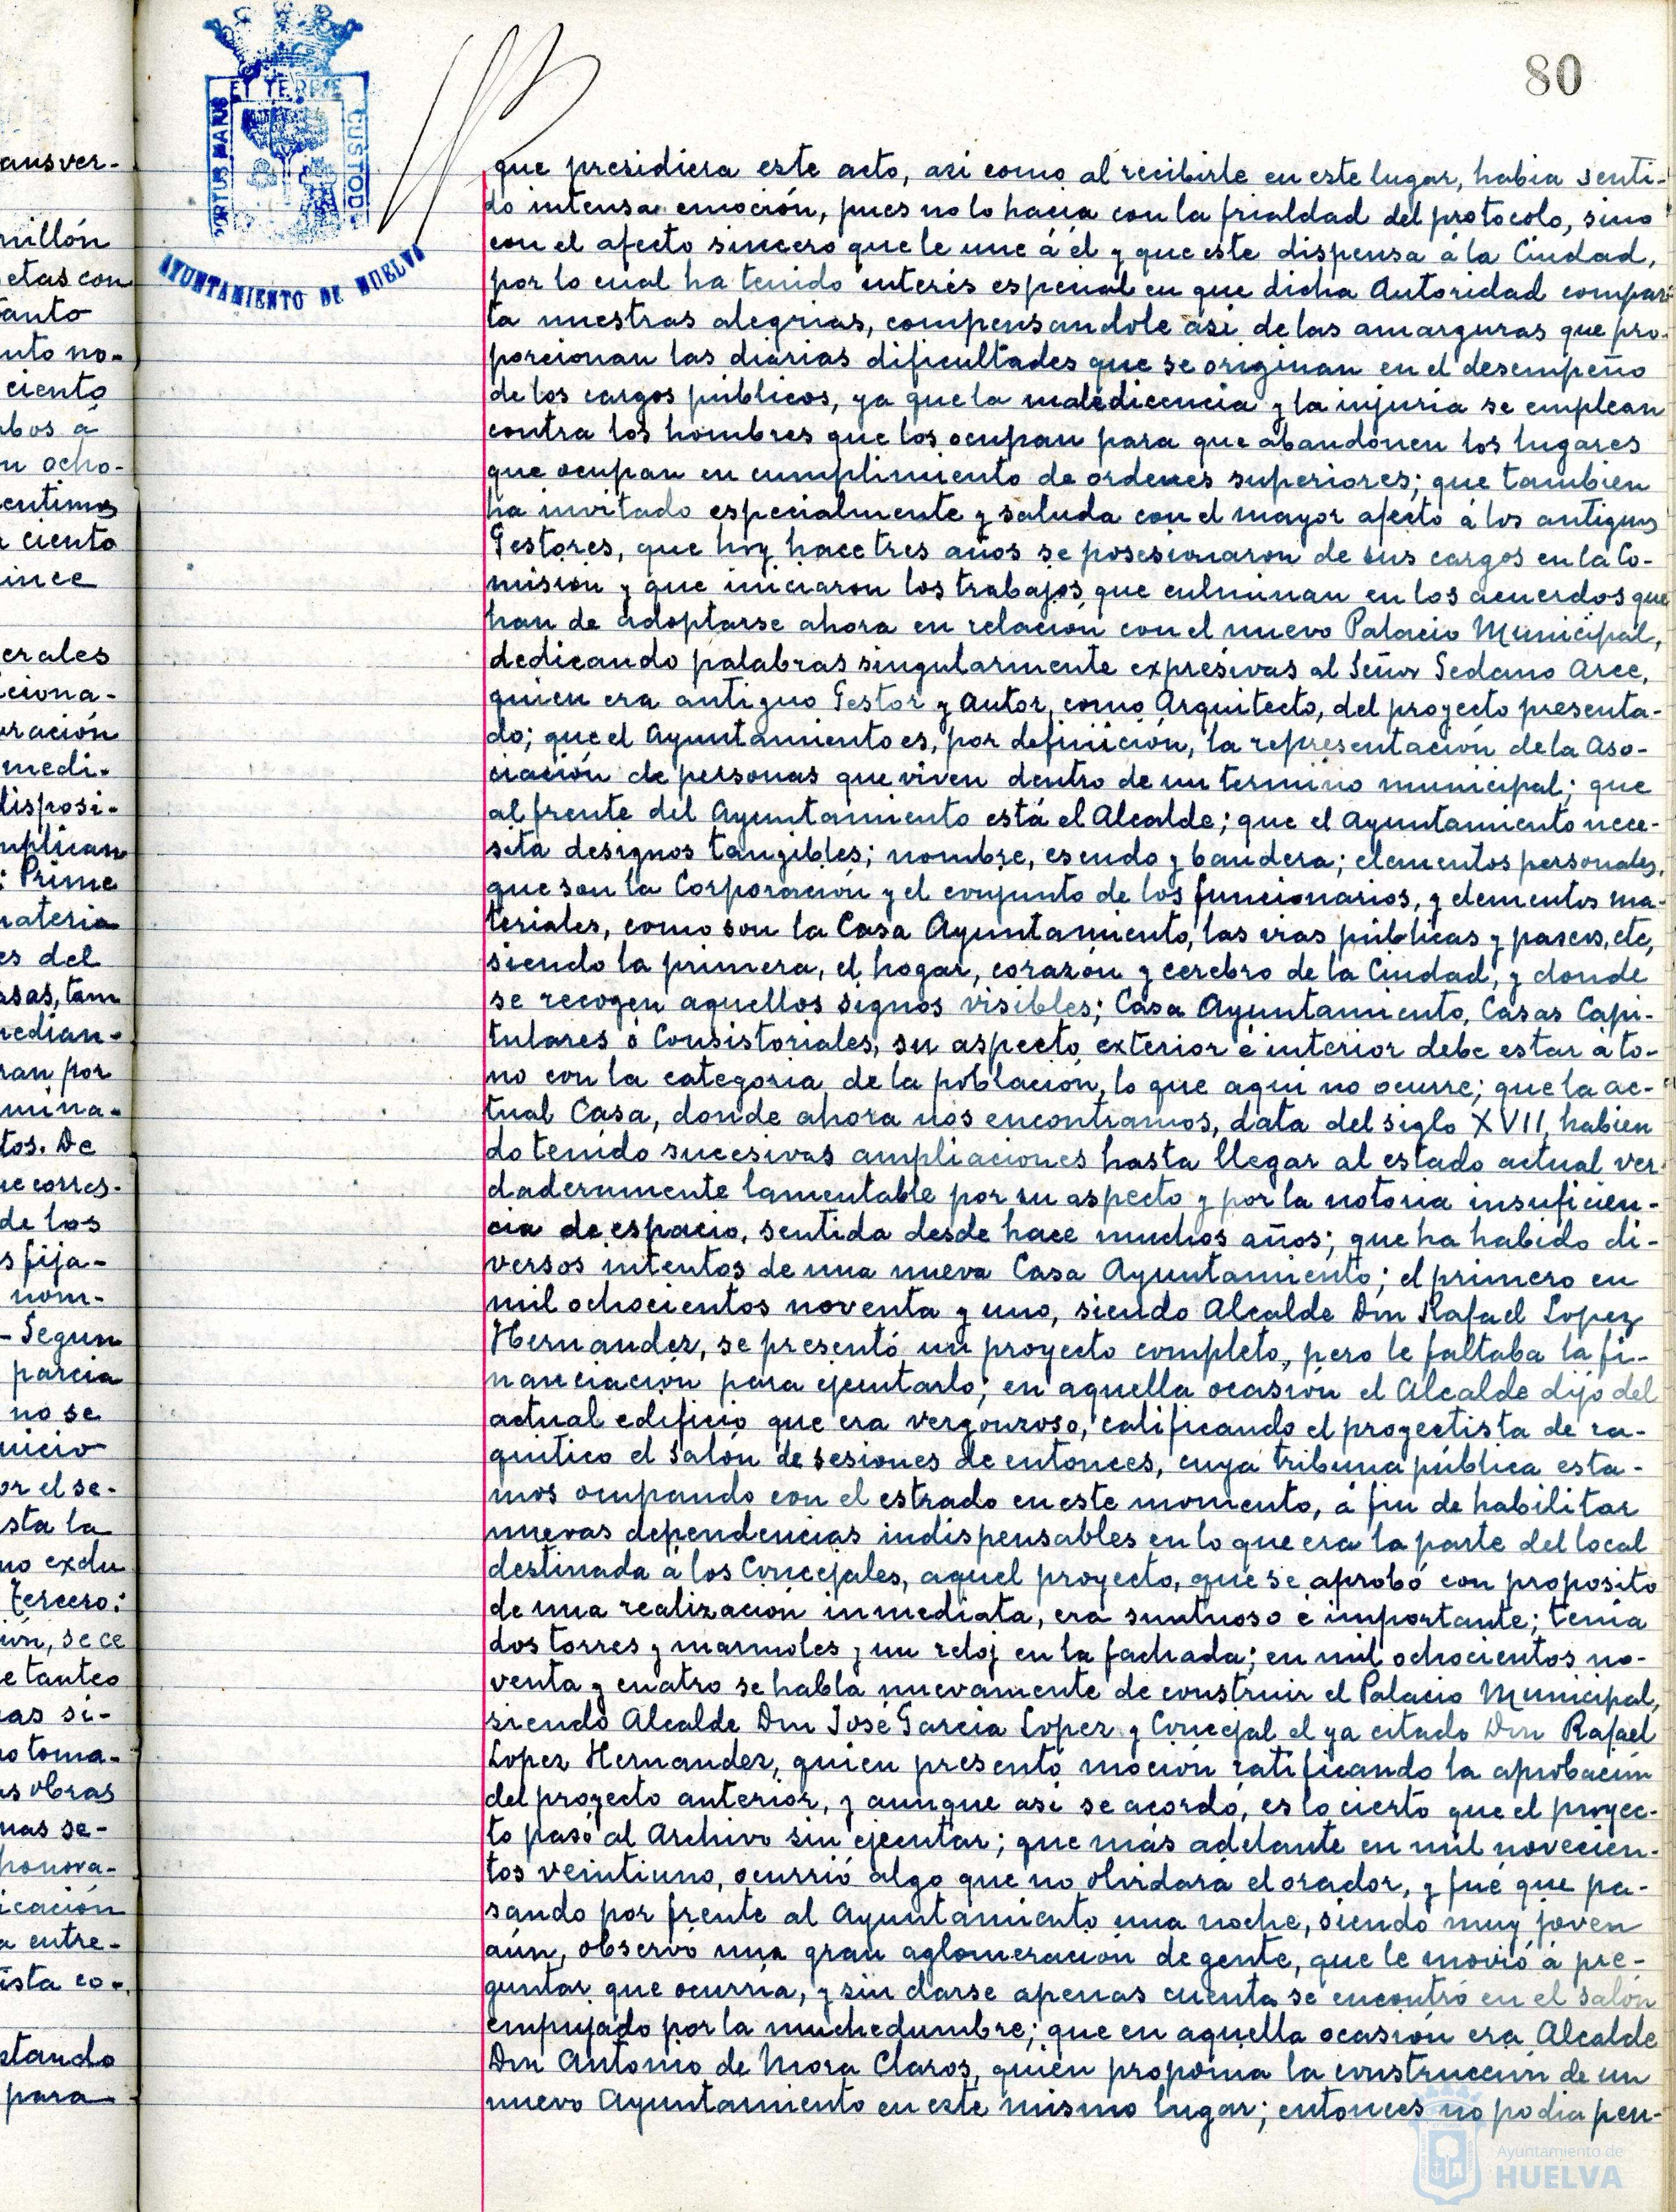 80
ET TERRE
PORTUS MARIS
CUSTOD
AYUNTAMIENTO DE HUELVA
que presidiera este acto, asi como al recibirle en este lugar, habia senti-
do intensa emoción, pues no lo hacía con la frialdad del protocolo, sino
con el afecto sincero que le une á él y que este dispensa á la Ciudad,
por lo cual ha tenido interés especial en que dicha Autoridad compar
ta nuestras alegrias, compensandole asi de las amarguras que pro-
porcionan las diarias dificultades que se originan en el desempeño
de los cargos públicos, ya que la maledicencia y la injuria se emplean
contra los hombres que los ocupan para que abandonen los lugares
que ocupan en cumplimiento de ordenes superiores; que tambien
ha invitado especialmente y saluda con el mayor afecto á los antiguos
Gestores, que hoy hace tres años se posesionaron de sus cargos en la Co-
misión y que iniciaron los trabajos que culminan en los acuerdos que
han de adoptarse ahora en relación con el nuevo Palacio Municipal,
dedicando palabras singularmente expresivas al Señor Sedano Arce,
quien era antiguo Gestor y Autor, como Arquitecto, del proyecto presenta-
do; que el Ayuntamiento es, por definición, la representación de la aso-
ciación de personas que viven dentro de un termino municipal; que
al frente del Ayuntamiento está el Alcalde; que el Ayuntamiento nece-
sita designos tangibles; nombre, escudo y bandera; elementos personales,
que son la Corporación y el conjunto de los funcionarios, y elementos ma-
teriales, como son la Casa Ayuntamiento, las vias públicas y paseos, etc,
siendo la primera, el hogar, corazón y cerebro de la Ciudad, y donde
se recogen aquellos signos visibles; Casa Ayuntamiento, Casas Capi-
tulares ó Consistoriales, su aspecto exterior é interior debe estar á to-
no con la categoria de la población, lo que aqui no ocurre; que la ac-
tual Casa, donde ahora nos encontramos, data del siglo XVII, habien
do tenido sucesivas ampliaciones hasta llegar al estado actual ver-
daderamente lamentable por su aspecto y por la notoria insuficien-
cia de espacio, sentida desde hace muchos años; que ha habido di-
versos intentos de una nueva Casa Ayuntamiento; el primero en
mil ochocientos noventa y uno, siendo Alcalde Don Rafael Lopez
Hernandez, se presentó un proyecto completo, pero le faltaba la fi-
nanciación para ejecutarlo; en aquella ocasión el Alcalde dijo del
actual edificio que era vergonzoso, calificando el proyectista de ra-
quitico el Salón de sesiones de entonces, cuya tribuna pública esta-
mos ocupando con el estrado en este momento, á fin de habilitar
nuevas dependencias indispensables en lo que era la parte del local
destinada á los Concejales, aquel proyecto, que se aprobó con proposito
de una realización inmediata, era suntuoso é importante; tenia
dos torres y marmoles y un reloj en la fachada; en mil ochocientos no-
venta y cuatro se habla nuevamente de construir el Palacio Municipal,
siendo Alcalde Don José Garcia Lopez y Concejal el ya citado Don Rafael
Lopez Hernandez, quien presentó moción ratificando la aprobación
del proyecto anterior, y aunque asi se acordó, es lo cierto que el proyec-
to pasó al Archivo sin ejecutar; que más adelante en mil novecien-
tos veintiuno, ocurrió algo que no olvidará el orador, y fué que pa-
sando por frente al Ayuntamiento una noche, siendo muy joven
aún, observó una gran aglomeración de gente, que le movió á pre-
guntar que ocurria, y sin darse apenas cuenta se encontró en el salón
empujado por la muchedumbre; que en aquella ocasión era Alcalde
Don Antonio de Mora Claros, quien proponia la construcción de un
nuevo Ayuntamiento en este mismo lugar; entonces no podia pen-
ansver-
millón
etas con
anto
nto no-
ciento
bos á
n ocho-
entimos
ciento
ince
erales
ciona-
ración
medi-
disposi-
mplican
: Prime
materia
es del
sas, tam
median-
ran por
mina-
tos. De
ue corres-
de los
s fija-
nom-
- Segun
parcia
no se
uicio
or el se-
sta la
no exclu
Tercero:
ion, se ce
e tanteo
as si-
o toma-
s obras
nas se-
honora-
icación
a entre-
ista co-
stando
para
Ayuntamiento de
HUELVA